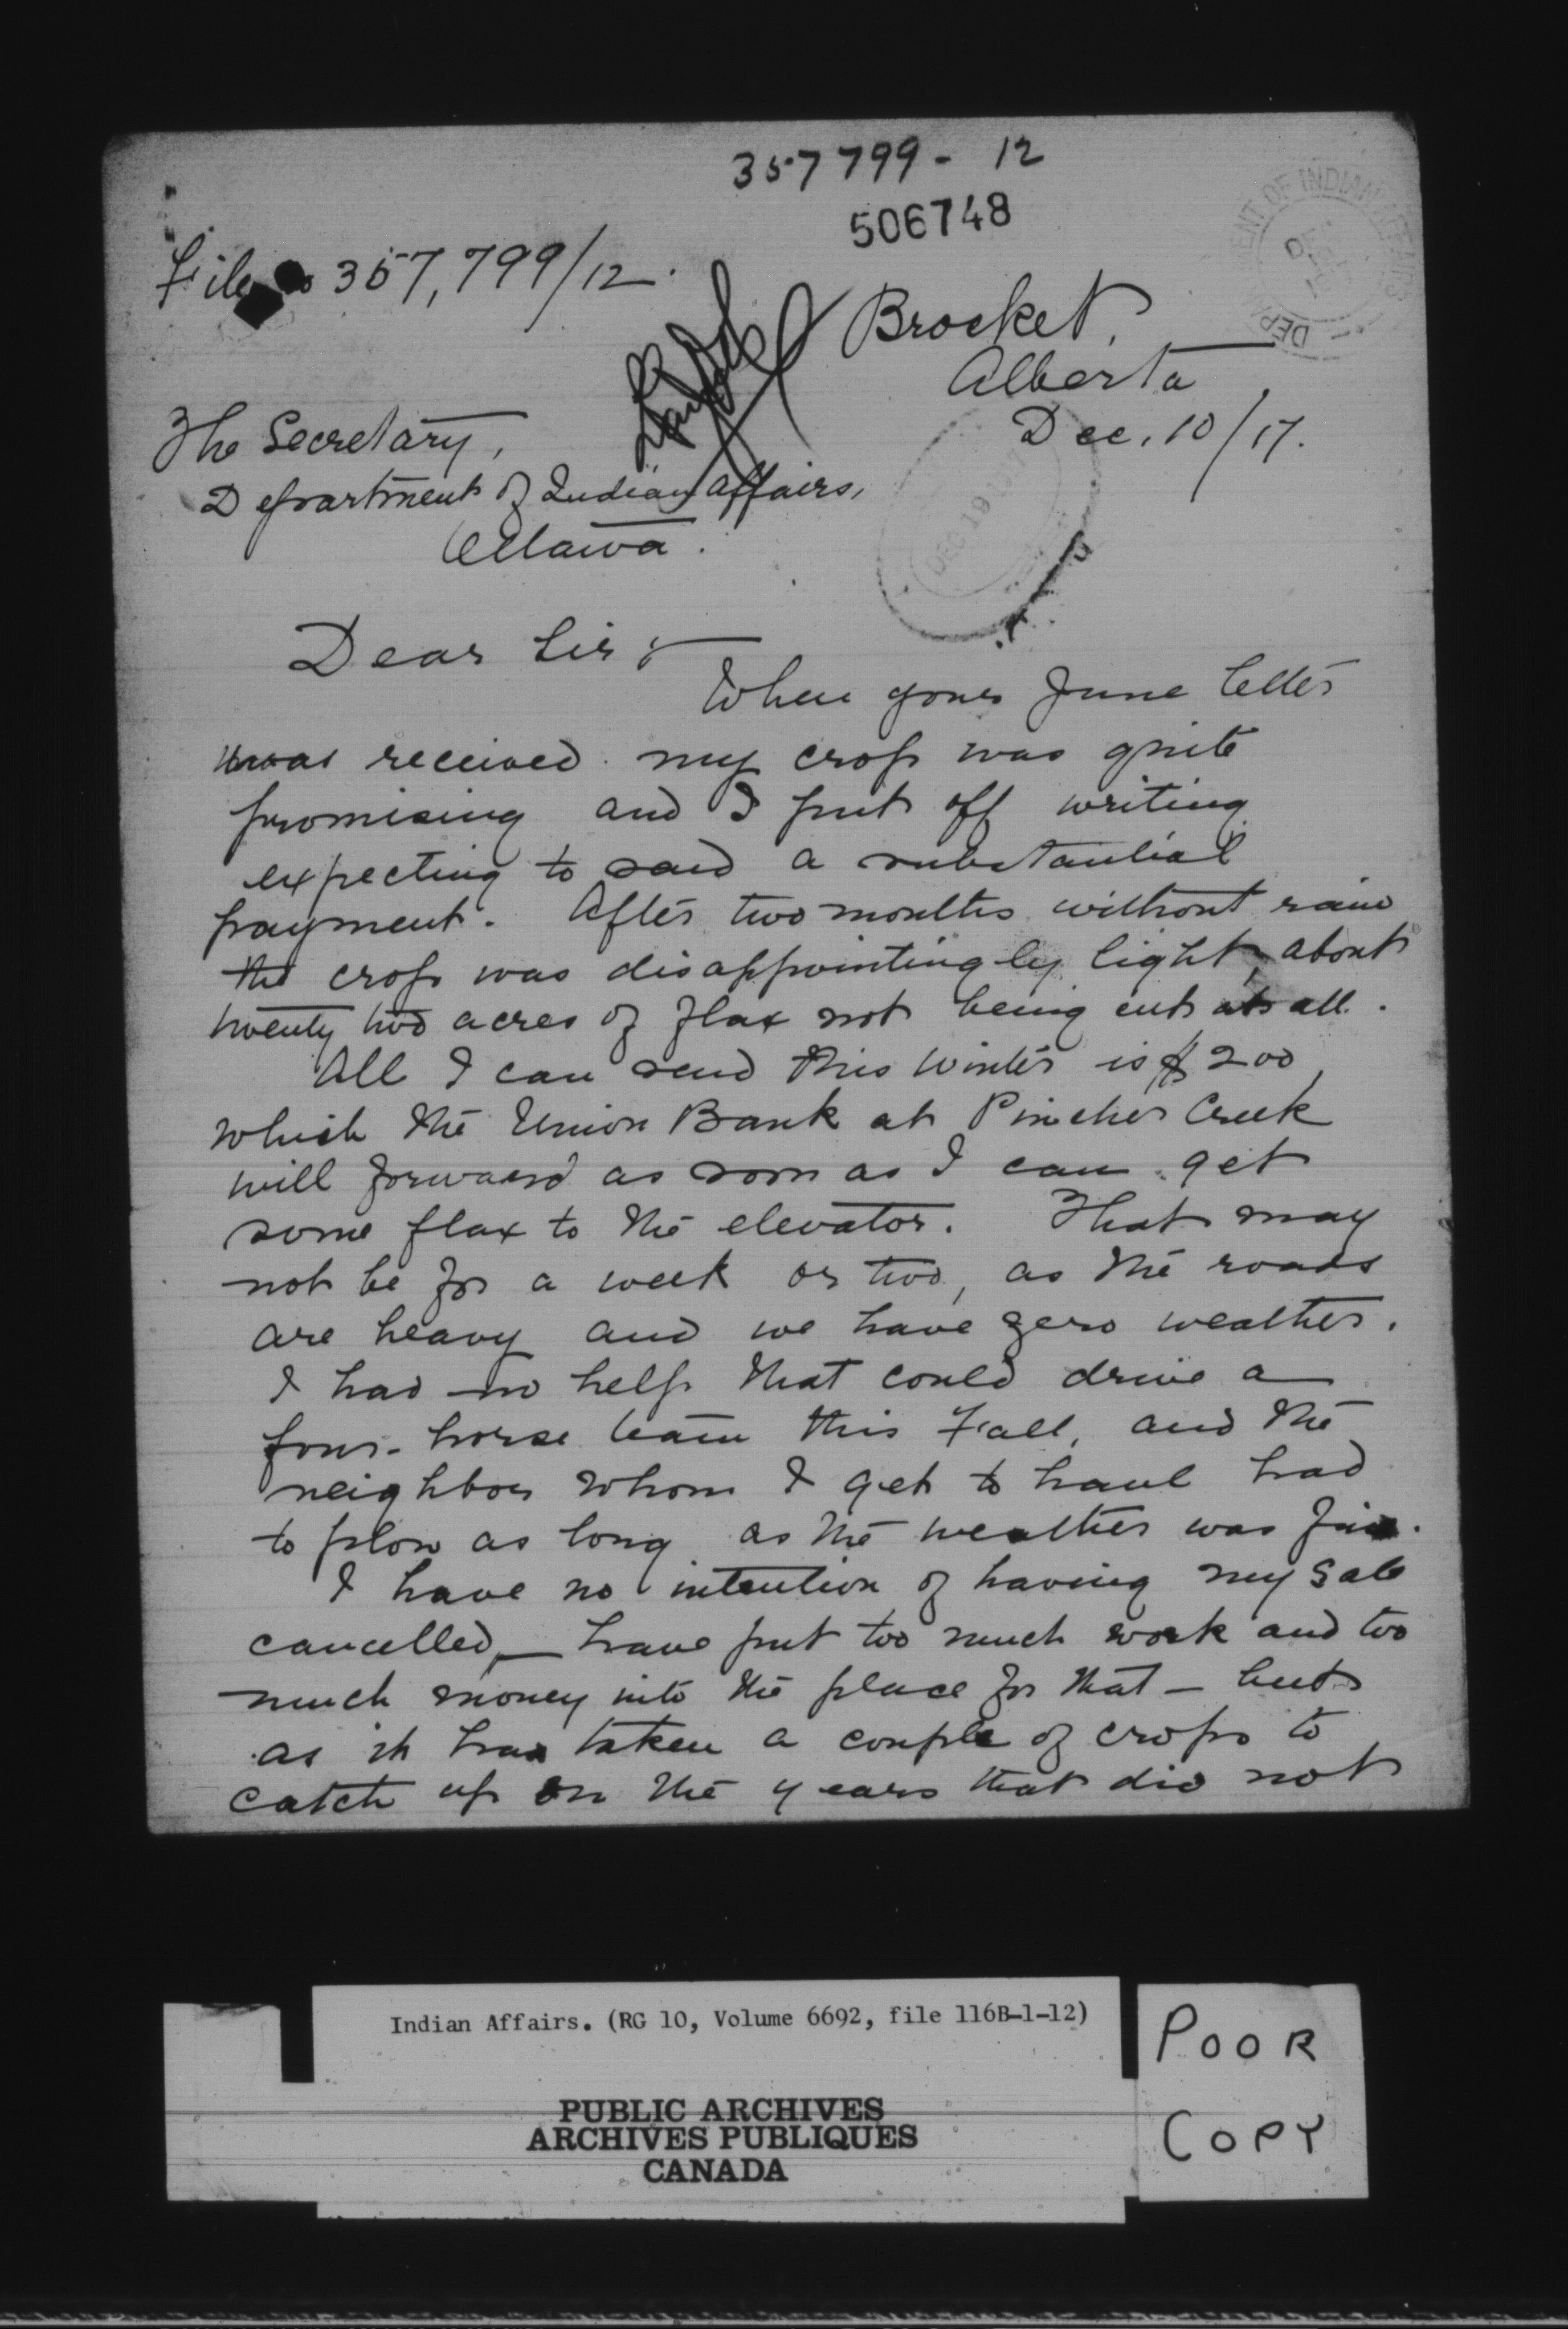 357799 - 12
506748
DEPARTMENT OF INDIAN AFFAIRS
File 357,799/12.
Brocket,
Alberta
Dec. 10/17.
The Secretary,
Department of Indian Affairs,
Ottawa.
DEC 19 1917
Dear Sir:—
When your June letter
was received my crop was quite
promising and I put off writing
expecting to send a substantial
payment. After two months without rain
the crop was disappointingly light, about
twenty two acres of flax not being cut at all.
All I can send this winter is $200,
which the Union Bank at Pincher Creek
will forward as soon as I can get
some flax to the elevator. That may
not be for a week or two, as the roads
are heavy and we have zero weather.
I had no help that could drive a
four-horse team this Fall, and the
neighbor whom I get to haul had
to plow as long as the weather was fair.
I have no intention of having my sale
cancelled, — have put too much work and too
much money into the place for that — but
as it has taken a couple of crops to
catch up on the years that did not
Indian Affairs. (RG 10, Volume 6692, file 116B-1-12)
PUBLIC ARCHIVES
ARCHIVES PUBLIQUES
CANADA
POOR
COPY